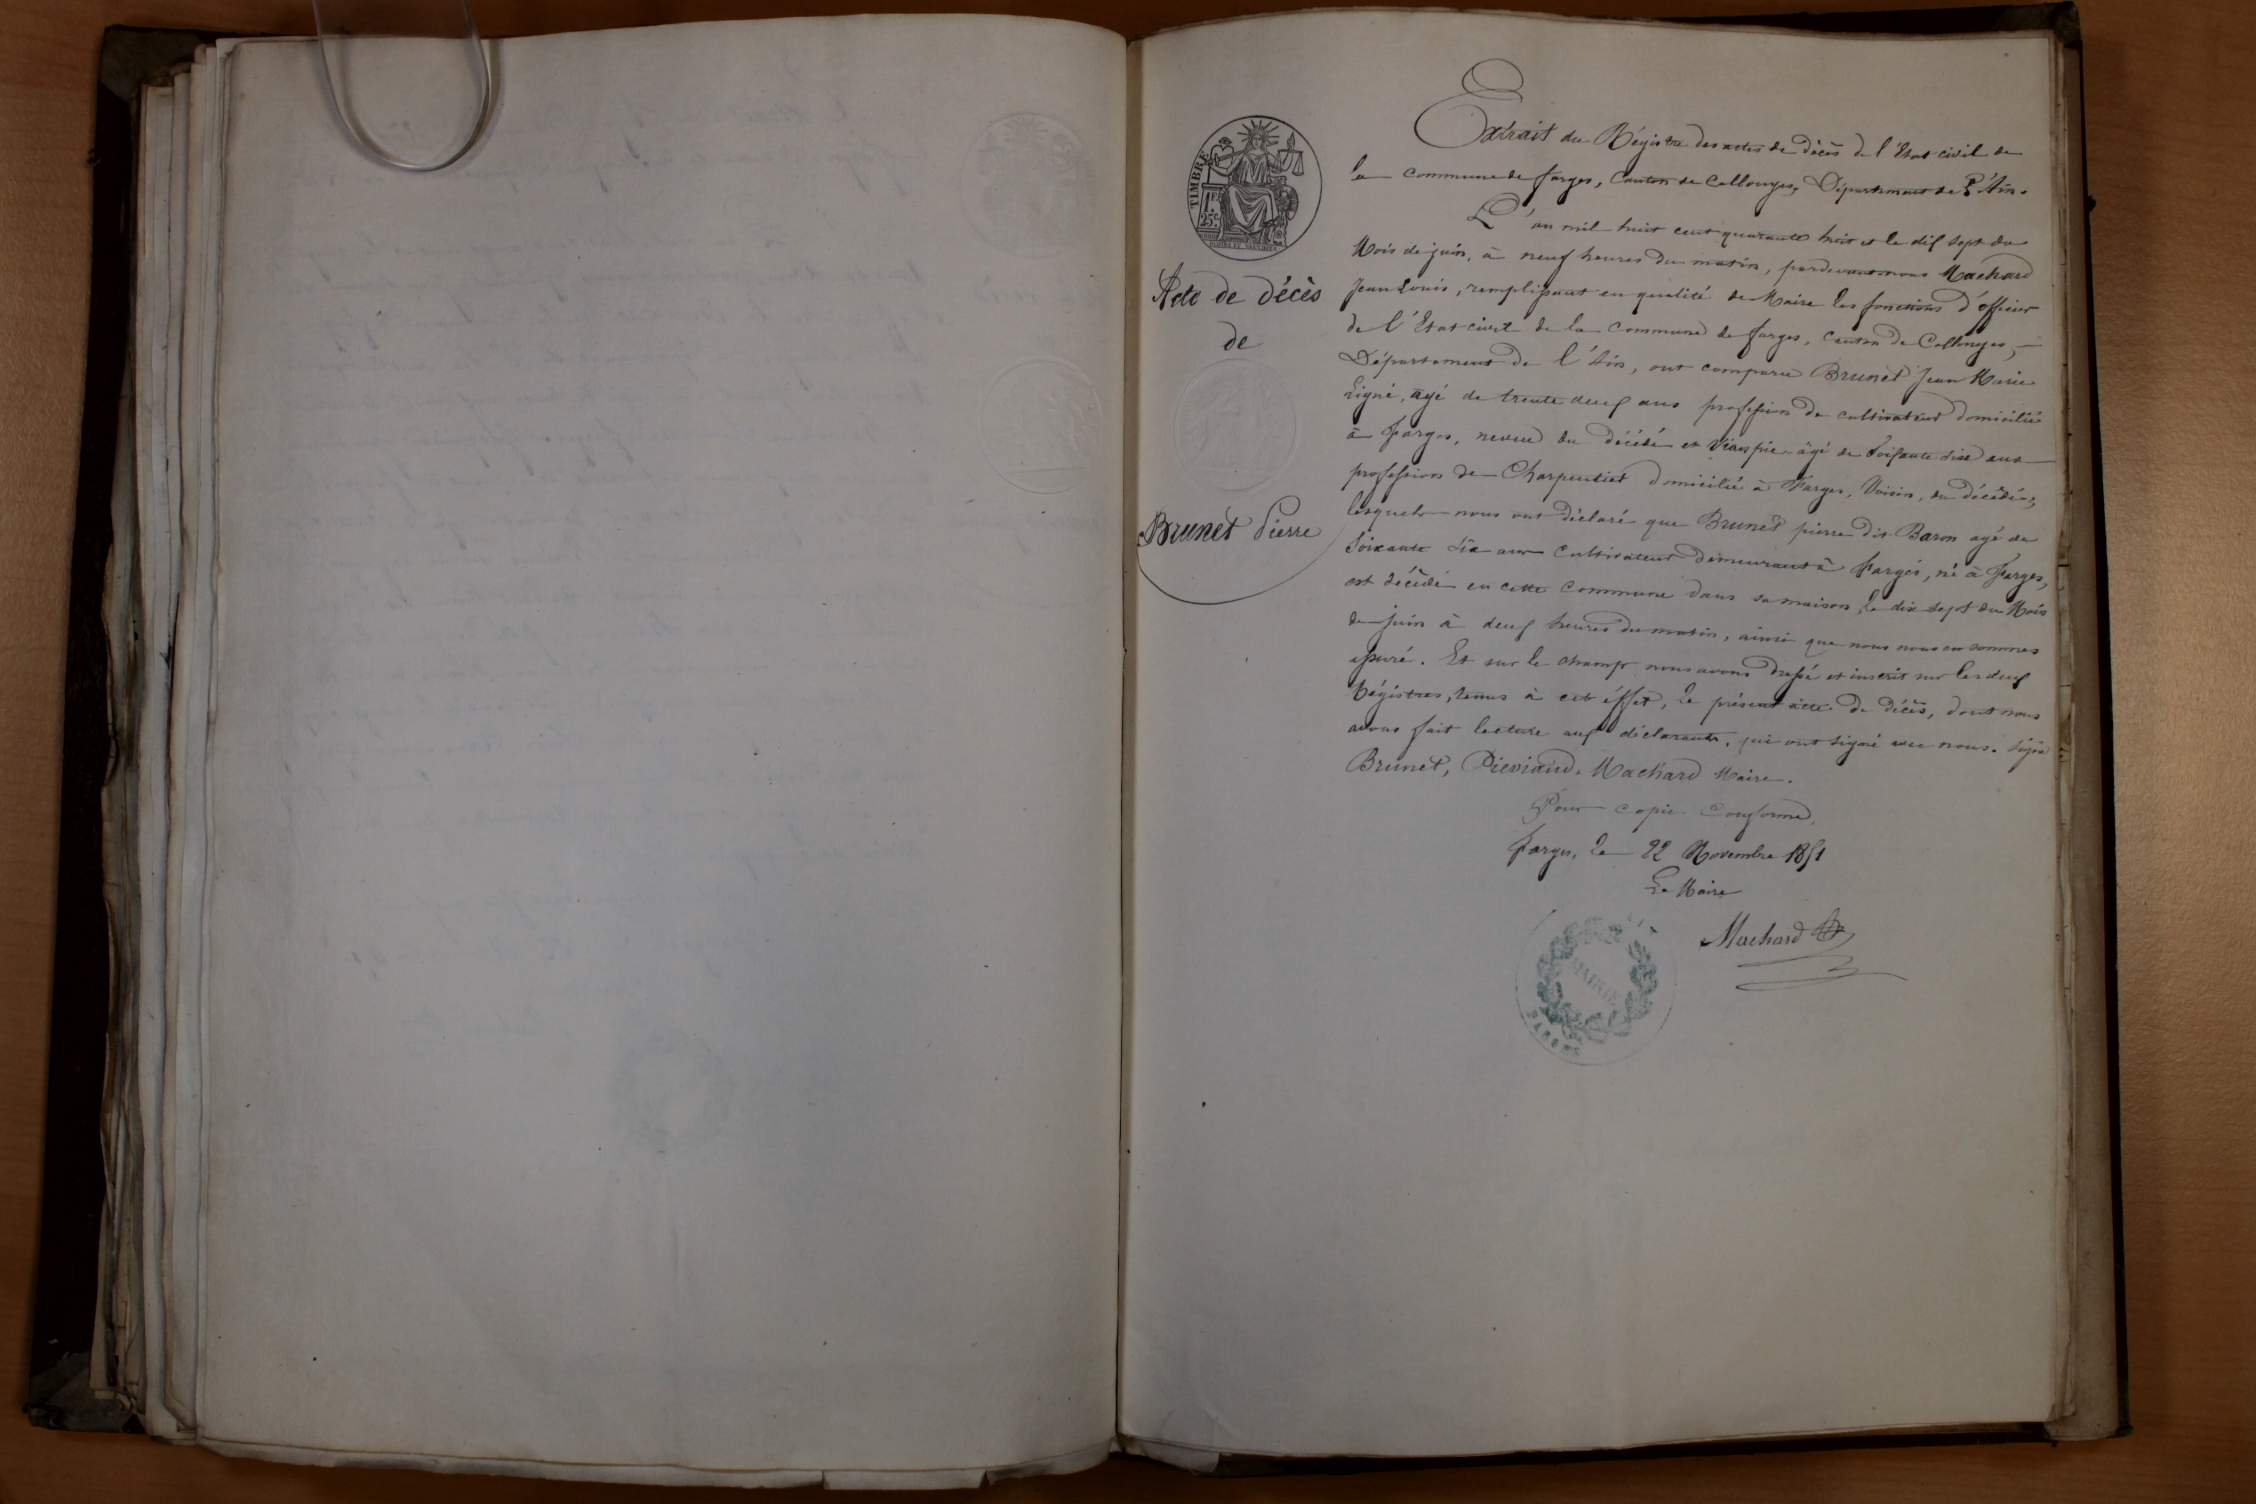 TIMBRE
1F.
25c.
Acte de décès
de
Brunet Pierre
Extrait du Régistre des actes de décès de l'Etat civil de
la commune de farges, Canton de Collonges, Département de l'Ain.
L'an mil huit cent quarante huit et le dix sept du
Mois de juin, à neuf heures du matin, pardevant nous Machard
Jean Louis, remplissant en qualité de Maire les fonctions d'officier
de l'Etat civil de la commune de farges, canton de Collonges,
Département de l'Ain, ont comparu Brunet Jean Marie
agé de trente deux ans profession de cultivateur domicilié
à farges, neveu du décédé et âgé de soixante dix ans
profession de Charpentier domicilié à Farges, Voisin, du décédé,
lesquels nous ont déclaré que Brunet pierre dit Baron agé de
soixante dix ans cultivateur demeurant à Farges, né à Farges,
est décédé en cette commune dans sa maison, le dix sept du Mois
de juin à deux heures du matin, ainsi que nous nous en sommes
assuré. Et sur le champ nous avons dressé et inscrit sur les deux
Régistres, tenus à cet éffet, le présent acte de décès, dont nous
avons fait lecture aux déclarants, qui ont signé avec nous. Signé
Brunet, Machard Maire.
Pour copie Conforme,
farges, le 22 Novembre 1851
Le Maire
Machard
MAIRIE
FARGES